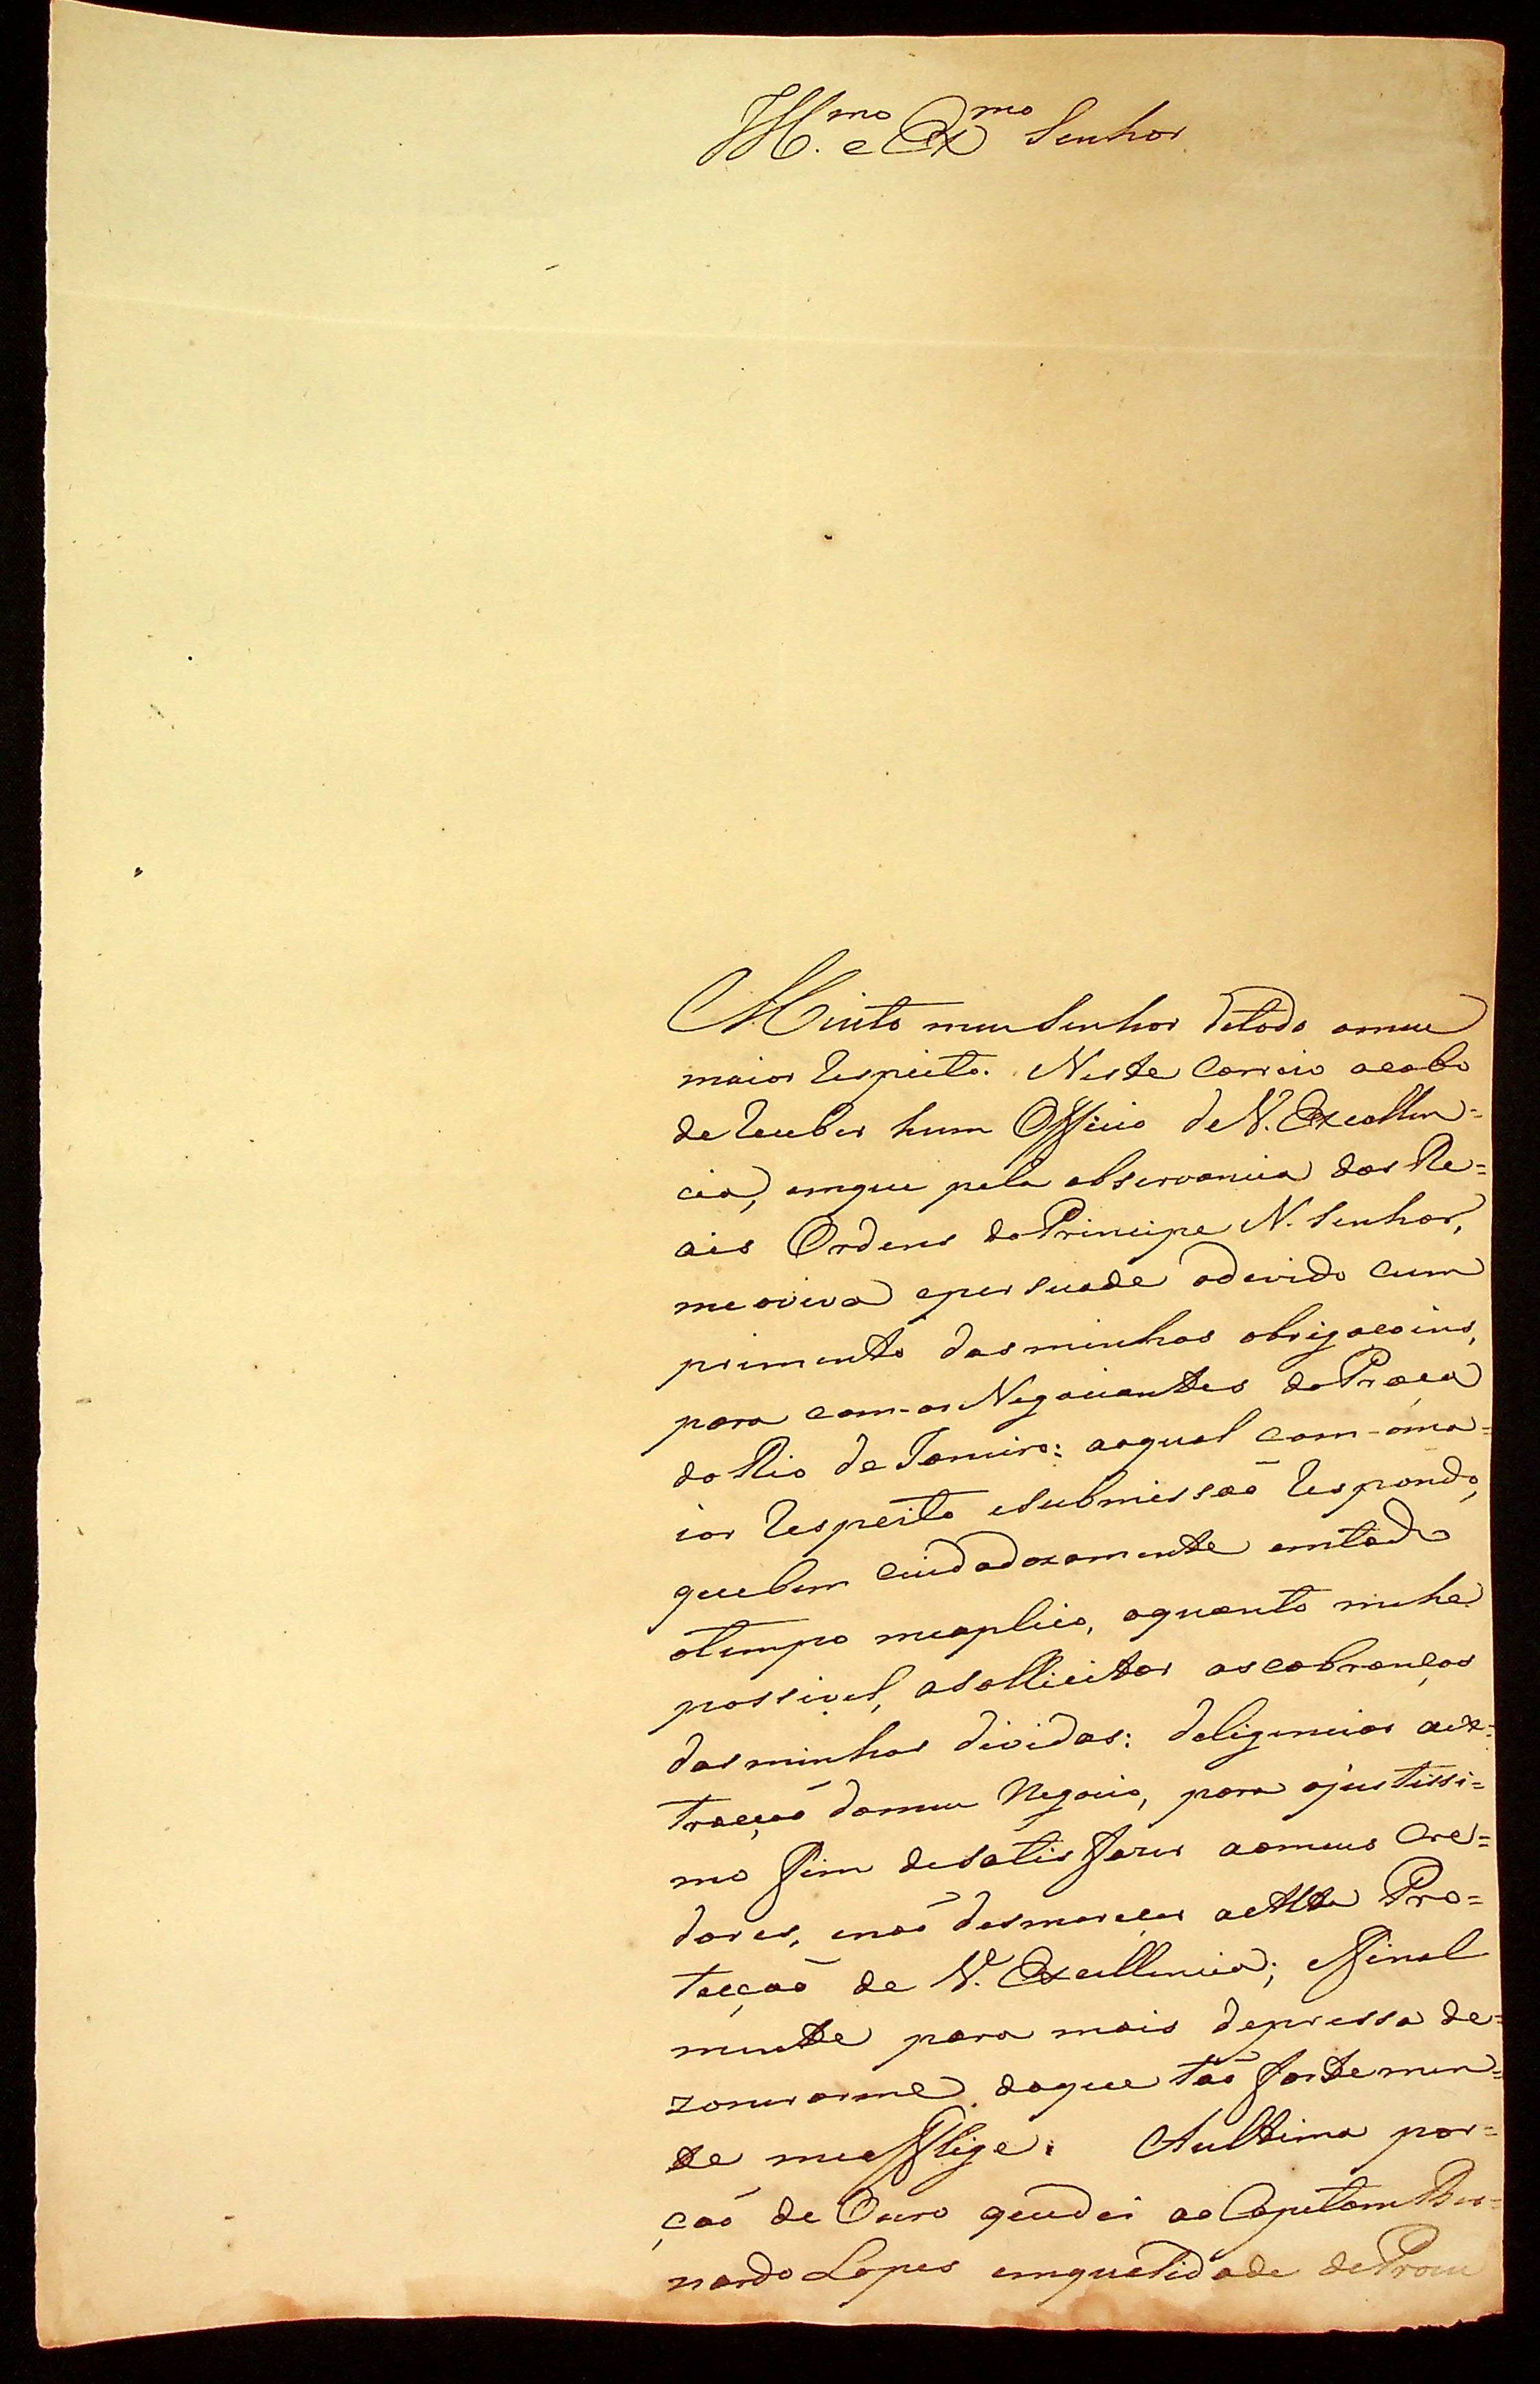 Ill.mo e Ex.mo Senhor
Muito meu Senhor detodo omeu
maior Respeito. Neste Correio acabo
de Receber hum Officio de V. Excellen=
cia, emque pela observancia das Re=
ais Ordens do Principe N. Senhor,
me aviva epersuade odevido cum
primento dasminhas obrigacoins,
para com-os Negociantes da Praça
do Rio de Janeiro: aoqual com-oma=
ior Respeito eSubmissaõ Respondo,
quebem cuidadozamente emtodo
otempo meaplico, aquanto mehe
possivel, aSollicitar ascobranças
dasminhas dividas: deligencias aex=
tracçaõ domeu Negocio, para ojustissi=
mo fim deSatisfazer aomeus Cre=
dores, enaõ desmerecer aAlta Pro=
tecçaõ de V. Excellencia; eFinal
mente para mais depressa de=
zonerarme doque taõ fortemen=
te meafflige. Aultima por=
çaõ de Ouro quedei ao Capitam Ber=
nardo Lopes emqualidade deProcu